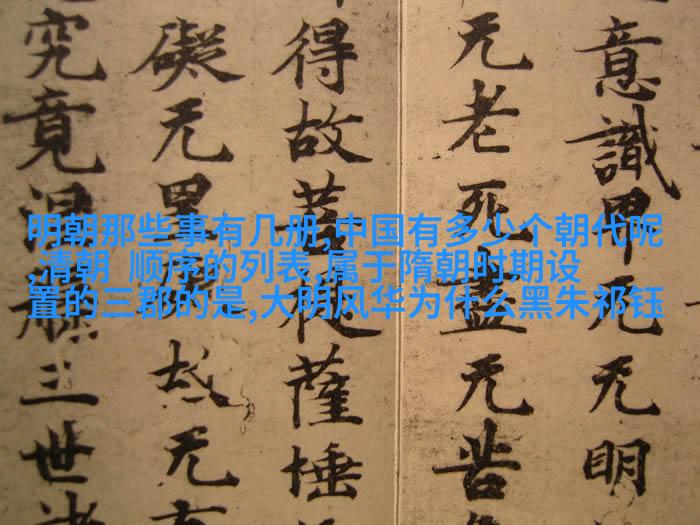 明朝那些事有几册,中国有多少个朝代呢
,清朝 顺序的列表,属于隋朝时期设
置的三郡的是,大明风华为什么黑朱祁钰
意識界无无明
无老死盡无苦
得故菩提薩埵
礙无罣礙故无
究竟涅槃三世諸